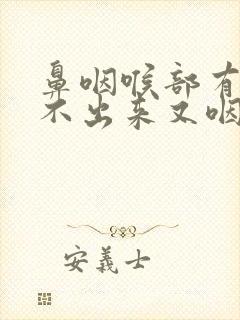 鼻咽喉部有
不出来又咽
安義士